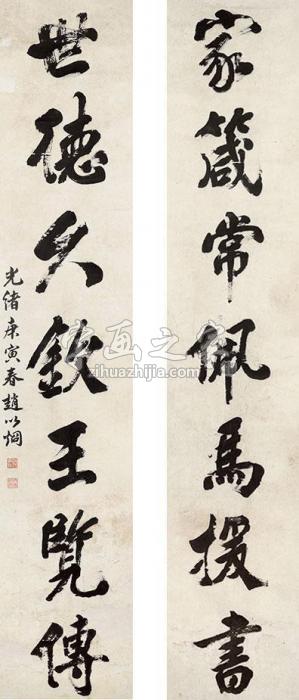 家箴常佩馬援書
世德久欽王覽傳
光緒庚寅春趙以烱
字画之家
zihuazhijia.com